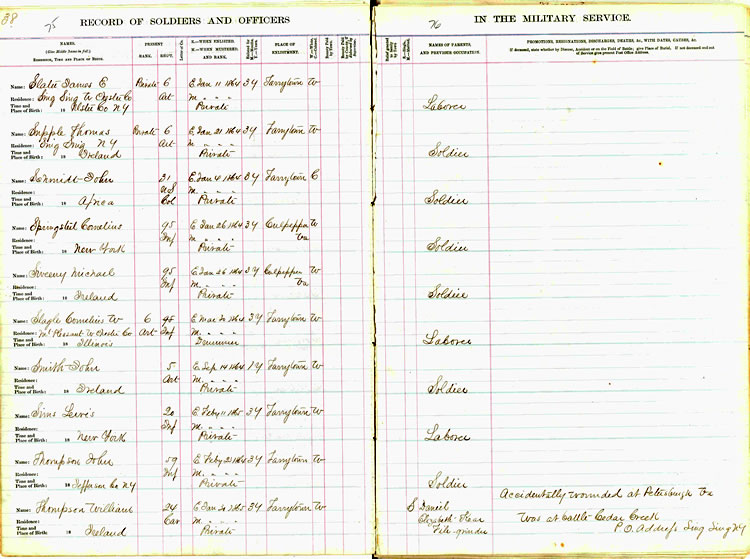 38
75
RECORD OF SOLDIERS AND OFFICERS
NAMES.
(Give Middle Names in full.)
RESIDENCE, TIME AND PLACE OF BIRTH.
PRESENT
RANK. REG'T.
E.—WHEN ENLISTED.
M.—WHEN MUSTERED;
AND RANK.
PLACE OF
ENLISTMENT.
Name: Slater James E Private 6 E Jan 11 1864 3Y Tarrytown W
Residence: Sing Sing W Chester Co Art M " " "
Time and
Place of Birth: 18 Ulster Co NY Private
Name: Supple Thomas Private 6 E Jan 21 1864 3Y Tarrytown W
Residence: Sing Sing NY Art M " " "
Time and
Place of Birth: 18 Ireland Private
Name: Schmidt John 31 E Jan 4 1864 3Y Tarrytown C
Residence: US M " " "
Time and
Place of Birth: 18 Africa Col Private
Name: Springsted Cornelius 95 E Jan 26 1864 3Y Culpepper W
Residence: Inf M " " " Va
Time and
Place of Birth: 18 New York Private
Name: Sweeny Michael 95 E Jan 26 1864 3Y Culpepper W
Residence: Inf M " " " Va
Time and
Place of Birth: 18 Ireland Private
Name: Slagle Cornelius W 6 E Mar 1864 3Y Tarrytown W
Residence: Mt Pleasant W Chester Co Art Inf M " " "
Time and
Place of Birth: 18 Illinois Drummer
Name: Smith John 5 E Sep 14 1864 1Y Tarrytown W
Residence: Art M " " "
Time and
Place of Birth: 18 Ireland Private
Name: Sims Lewis 20 E Feby 11 1865 3Y Tarrytown W
Residence: Inf M " " "
Time and
Place of Birth: 18 New York Private
Name: Thompson John 59 E Feby 1864 3Y Tarrytown W
Residence: Inf M " " "
Time and
Place of Birth: 18 Jefferson Co NY Private
Name: Thompson William 24 E Jan 1865 3Y Tarrytown W
Residence: Cav M " " "
Time and
Place of Birth: 18 Ireland Private
76
IN THE MILITARY SERVICE.
NAMES OF PARENTS,
AND PREVIOUS OCCUPATION.
PROMOTIONS, RESIGNATIONS, DISCHARGES, DEATHS, &c., WITH DATES, CAUSES, &c.
If deceased, state whether by Disease, Accident or on the Field of Battle; give Place of Burial. If not deceased and out
of Service give present Post Office Address.
Laborer
Soldier
Soldier
Soldier
Soldier
Laborer
Soldier
Laborer
Soldier
Accidentally wounded at Petersburgh Va
S Daniel
Elizabeth
File grinder
Was at battle Cedar Creek
P.O. Address Sing Sing NY